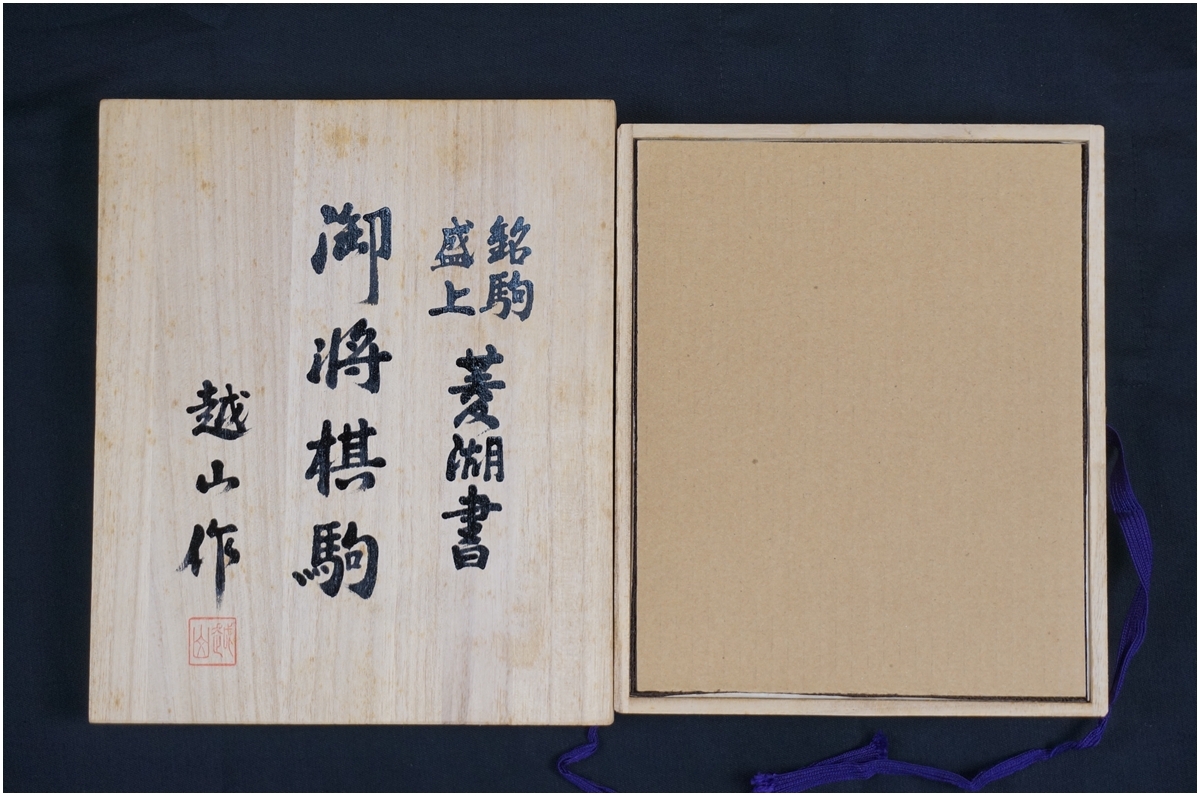 銘駒
盛上
菱湖書
御将棋駒
越山作
越山